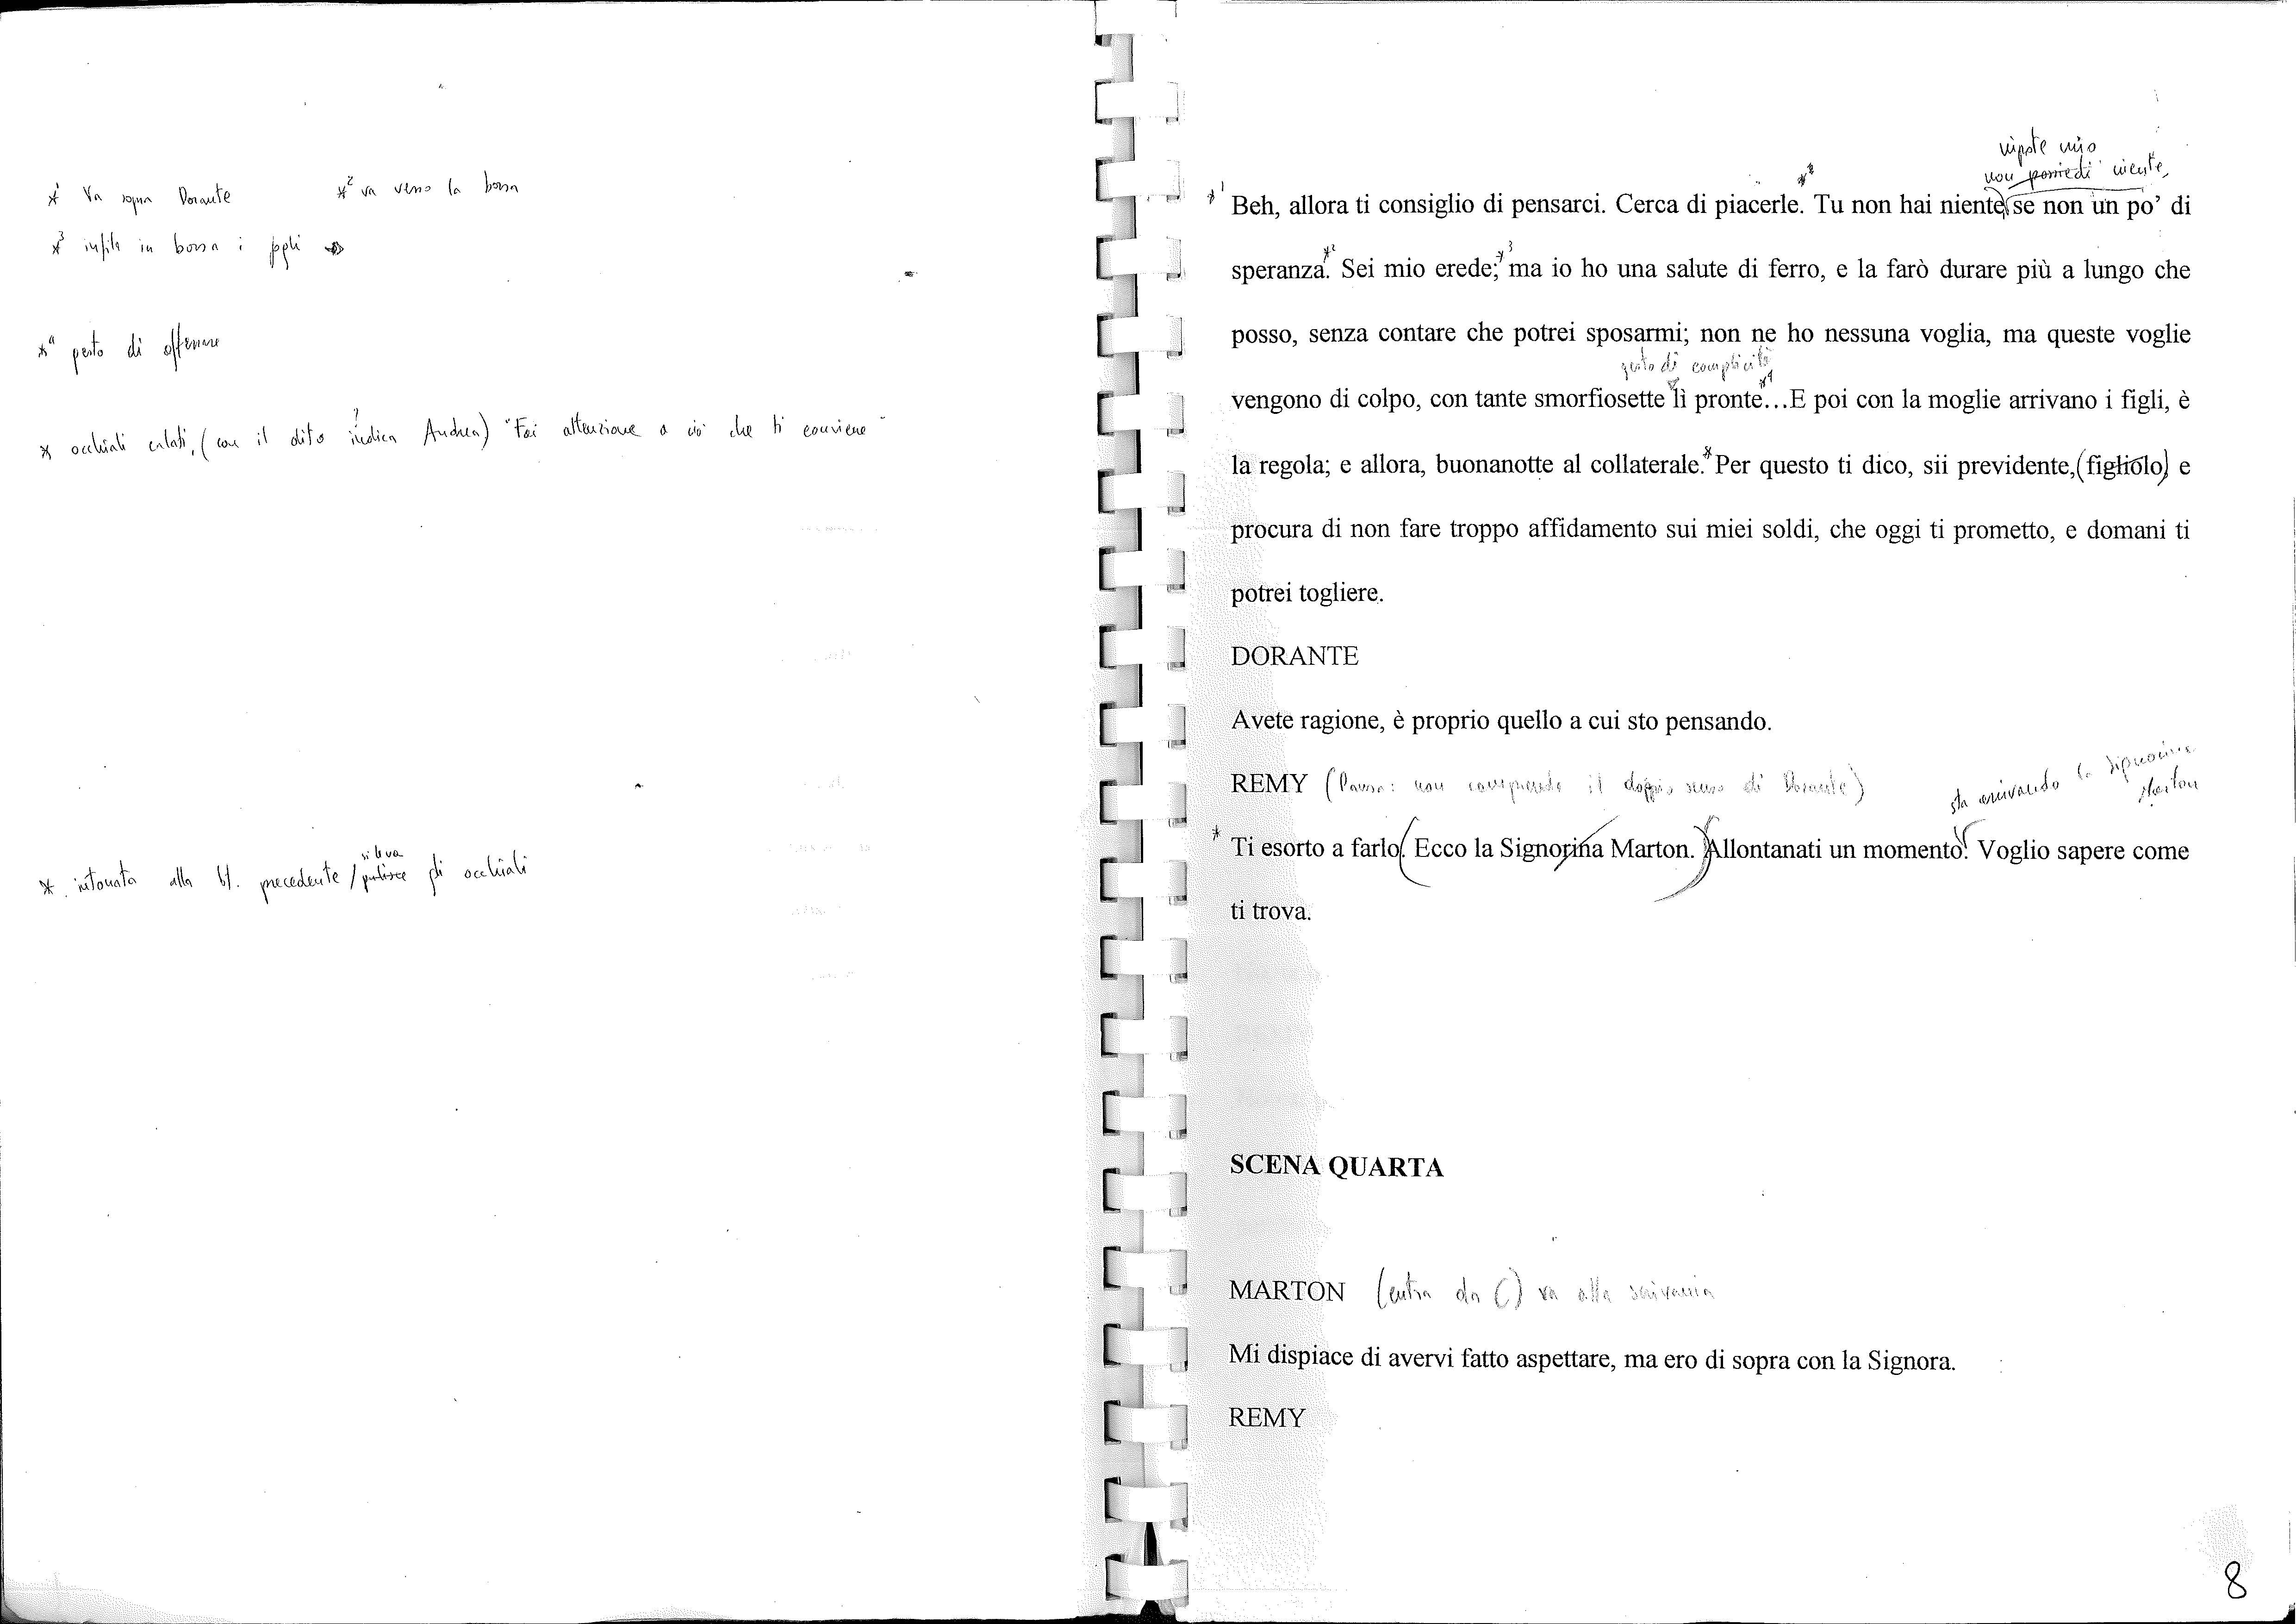 *1 Va sopra Dorante *2 va verso la borsa
*3 infila in borsa i fogli
*4 gesto di afferrare
* occhiali calati, (con il dito indica Andrea) "Fai attenzione a ciò che ti conviene"
* intonata alla bt. precedente / pulisce gli occhiali
si leva
nipote mio
non possiedi niente,
*1 Beh, allora ti consiglio di pensarci. Cerca di piacerle. Tu non hai niente, se non un po’ di
speranza. Sei mio erede; ma io ho una salute di ferro, e la farò durare più a lungo che
posso, senza contare che potrei sposarmi; non ne ho nessuna voglia, ma queste voglie
gesto di complicità
vengono di colpo, con tante smorfiosette lì pronte…E poi con la moglie arrivano i figli, è
la regola; e allora, buonanotte al collaterale.* Per questo ti dico, sii previdente, (figliolo) e
procura di non fare troppo affidamento sui miei soldi, che oggi ti prometto, e domani ti
potrei togliere.
DORANTE
Avete ragione, è proprio quello a cui sto pensando.
REMY (Pausa: non comprende il doppio senso di Dorante)
sta arrivando la Signorina
Marton
* Ti esorto a farlo. (Ecco la Signorina Marton.) Allontanati un momento! Voglio sapere come
ti trova.
SCENA QUARTA
MARTON (entra da C) va alla scrivania
Mi dispiace di avervi fatto aspettare, ma ero di sopra con la Signora.
REMY
8